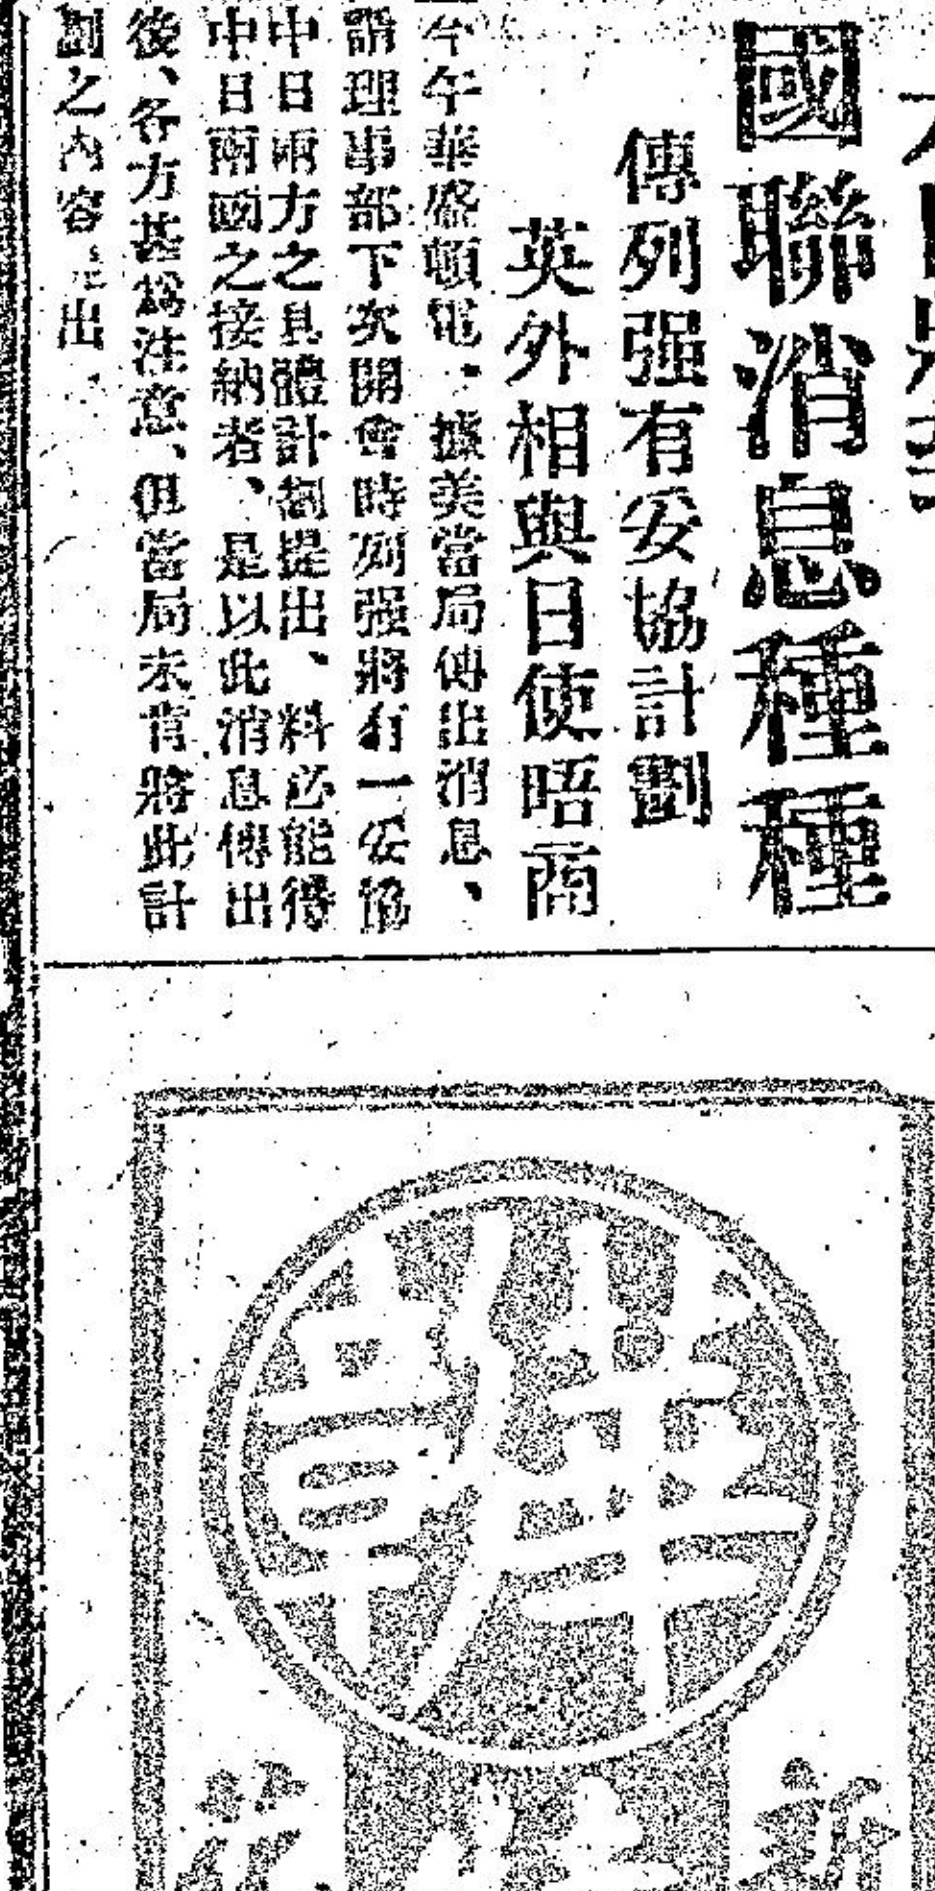 國聯消息種種
傳列强有妥協計劃
英外相與日使晤商
今午華盛頓電．據美當局傳出消息、
謂理事部下次開會時列强將有一妥協
中日兩方之具體計劃提出、料必能得
中日兩國之接納者、是以此消息傳出
後、各方甚爲注意、但當局未肯將此計
劃之內容 出．
華
新